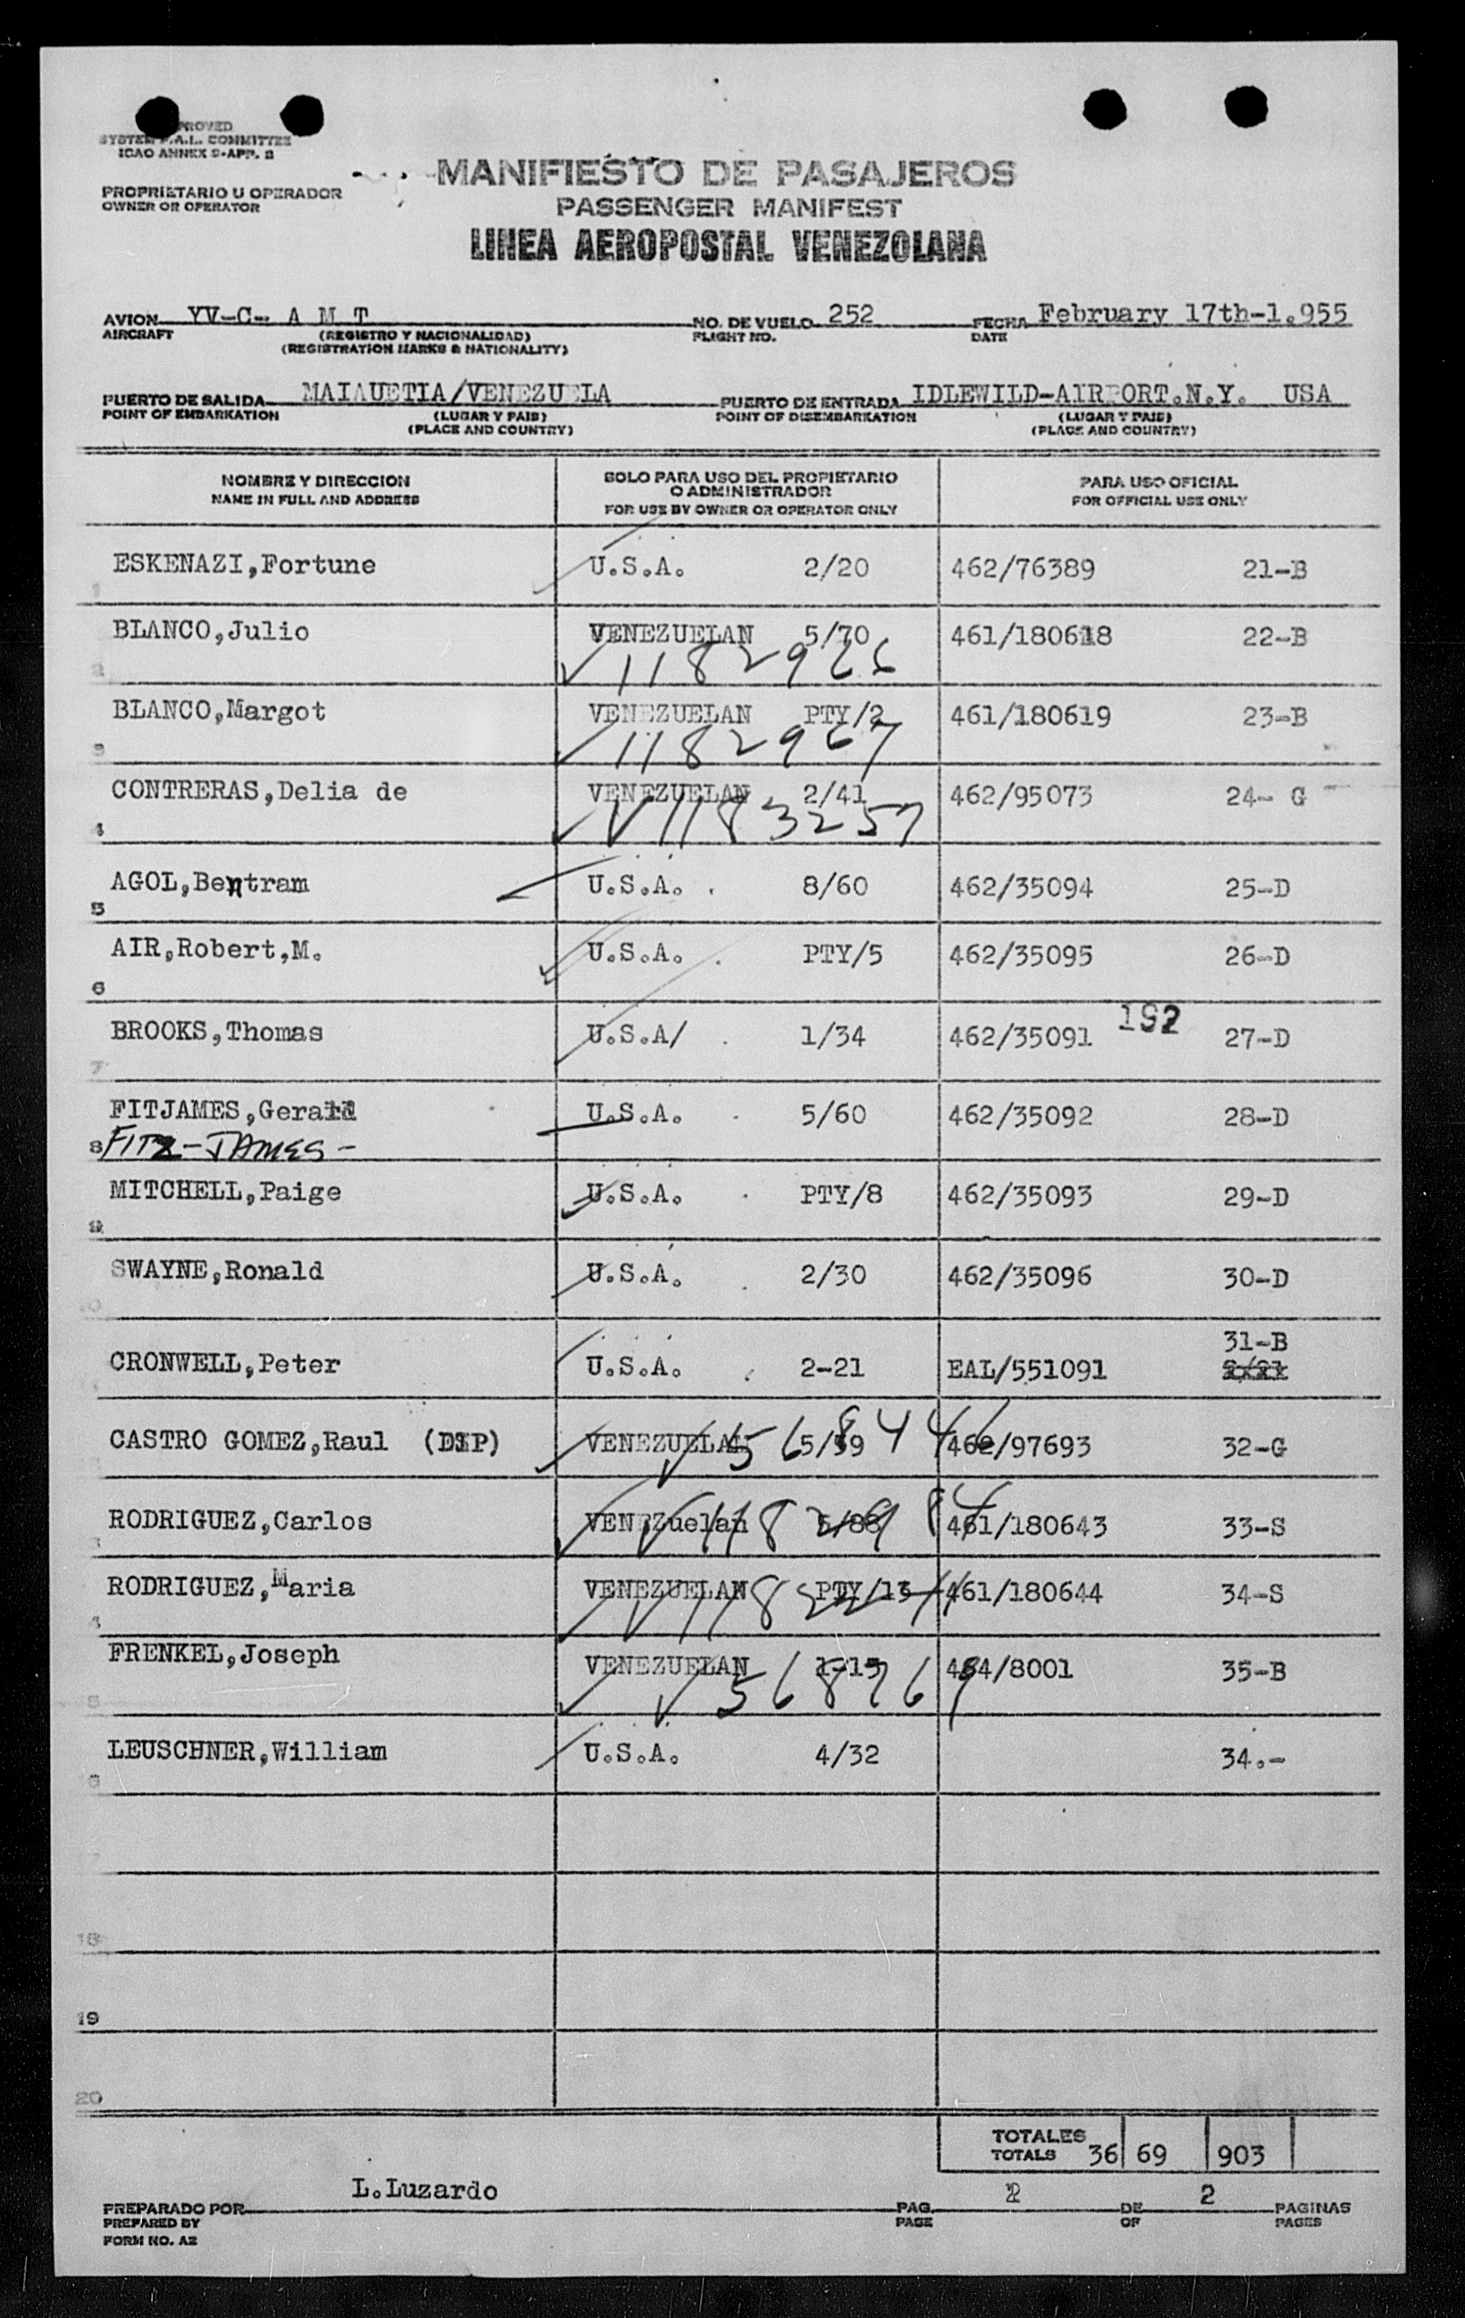 SYSTEM F.A.L. COMMITTEE
ICAO ANNEX 9-APP. 2
PROPRIETARIO U OPERADOR
OWNER OR OPERATOR
MANIFIESTO DE PASAJEROS
PASSENGER MANIFEST
LINEA AEROPOSTAL VENEZOLANA
AVION YV-C- A M T NO. DE VUELO 252 FECHA February 17th-1.955
AIRCRAFT (REGISTRO Y NACIONALIDAD) FLIGHT NO. DATE
(REGISTRATION MARKS & NATIONALITY)
PUERTO DE SALIDA MAIAUETIA/VENEZUELA PUERTO DE ENTRADA IDLEWILD-AIRPORT.N.Y. USA
POINT OF EMBARKATION (LUGAR Y PAIS) POINT OF DISEMBARKATION (LUGAR Y PAIS)
(PLACE AND COUNTRY) (PLACE AND COUNTRY)
NOMBRE Y DIRECCION
NAME IN FULL AND ADDRESS
SOLO PARA USO DEL PROPIETARIO
O ADMINISTRADOR
FOR USE BY OWNER OR OPERATOR ONLY
PARA USO OFICIAL
FOR OFFICIAL USE ONLY
ESKENAZI,Fortune U.S.A. 2/20 462/76389 21-B
1
BLANCO,Julio VENEZUELAN 5/70 461/180618 22-B
2 1182966
BLANCO,Margot VENEZUELAN PTY/2 461/180619 23-B
3 1182967
CONTRERAS,Delia de VENEZUELAN 2/41 462/95073 24- G
4 V1183257
AGOL,Bentram U.S.A. 8/60 462/35094 25-D
5
AIR,Robert,M. U.S.A. PTY/5 462/35095 26-D
6
BROOKS,Thomas U.S.A/ 1/34 462/35091 192 27-D
7
FITJAMES,Gerald U.S.A. 5/60 462/35092 28-D
8 FITZ-JAMES-
MITCHELL,Paige U.S.A. PTY/8 462/35093 29-D
9
SWAYNE,Ronald U.S.A. 2/30 462/35096 30-D
10
31-B
CRONWELL,Peter U.S.A. 2-21 EAL/551091 2/21
CASTRO GOMEZ,Raul (DIP) VENEZUELAN 5/59 462/97693 32-G
V568446
RODRIGUEZ,Carlos VENEZuelan 5/88 461/180643 33-S
RODRIGUEZ,Maria VENEZUELAN PTY/13 461/180644 34-S
FRENKEL,Joseph VENEZUELAN 1-15 484/8001 35-B
LEUSCHNER,William U.S.A. 4/32 34.-
6
18
19
20
TOTALES
TOTALS 36 69 903
L.Luzardo
PREPARADO POR PAG. 2 DE 2 PAGINAS
PREPARED BY PAGE OF PAGES
FORM NO. A2